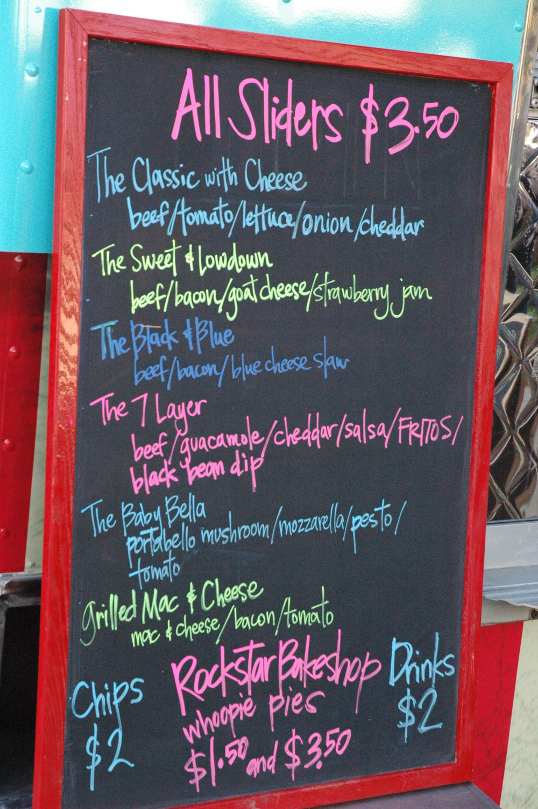 All Sliders $3.50
The Classic with Cheese
beef/tomato/lettuce/onion/cheddar
The Sweet & Lowdown
beef/bacon/goat cheese/strawberry jam
The Black & Blue
beef/bacon/blue cheese slaw
The 7 Layer
beef/guacamole/cheddar/salsa/FRITOS/
black bean dip
The Baby Bella
portabello mushroom/mozzarella/pesto/
tomato
Grilled Mac & Cheese
mac & cheese/bacon/tomato
Chips
$2
Rockstar Bakeshop
whoopie pies
$1.50 and $3.50
Drinks
$2